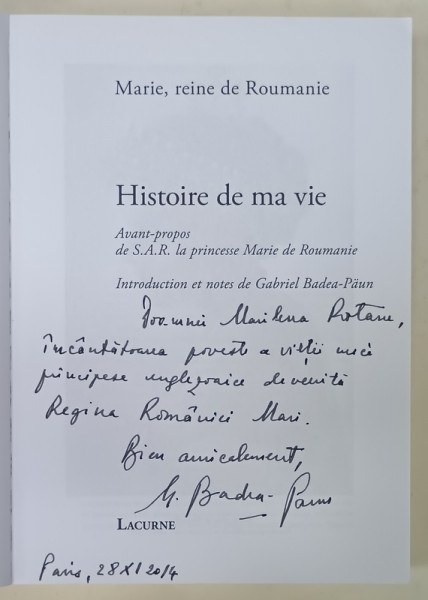 Marie, reine de Roumanie
Histoire de ma vie
Avant-propos
de S.A.R. la princesse Marie de Roumanie
Introduction et notes de Gabriel Badea-Päun
Doamnei Marilena Rotaru,
încântătoarea poveste a vieții unei
principese englezoaice devenită
Regina României Mari.
Bien amicalement,
G. Badea-Paun
LACURNE
Paris, 28 XI 2014